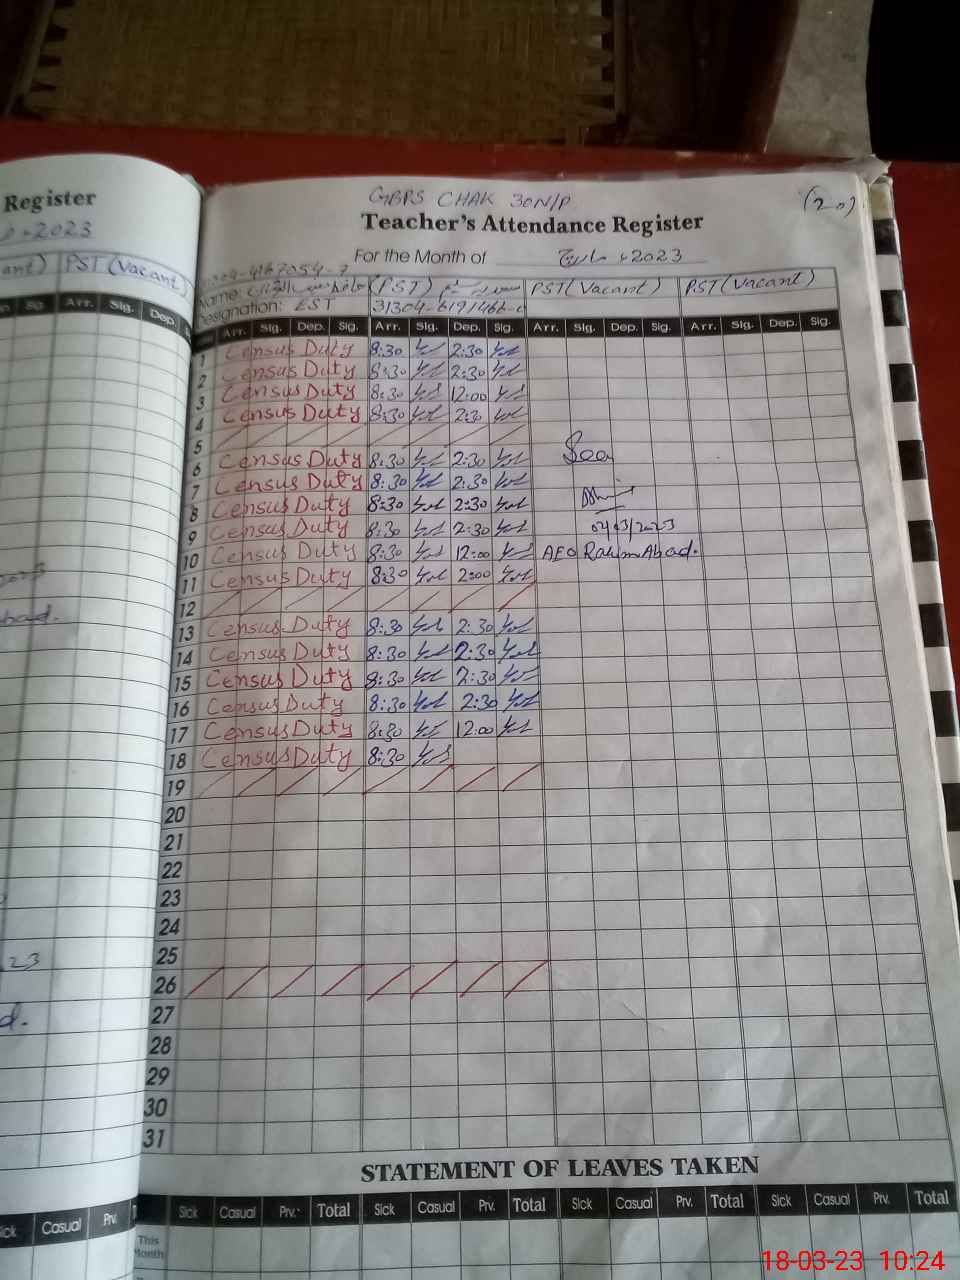 Register
2023
ant) PST (Vacant)
Sg. Arr. Sig. Dep.
GBPS CHAK 30N/P
(20)
Teacher's Attendance Register
For the Month of مارچ 2023
Name: (PST) PST (Vacant) PST (Vacant)
Designation: EST
Arr. Sig. Dep. Sig. Arr. Sig. Dep. Sig. Arr. Sig. Dep. Sig. Arr. Sig. Dep. Sig.
1 Census Duty 8:30 2:30
2 Census Duty 8:30 2:30
3 Census Duty 8:30 12:00
4 Census Duty 8:30 2:30
5
6 Census Duty 8:30 2:30 See
7 Census Duty 8:30 2:30
8 Census Duty 8:30 2:30
9 Census Duty 8:30 2:30
10 Census Duty 8:30 12:00 AEO Rahim Abad.
11 Census Duty 8:30 2:00
12
13 Census Duty 8:30 2:30
14 Census Duty 8:30 2:30
15 Census Duty 8:30 2:30
16 Census Duty 8:30 2:30
17 Census Duty 8:30 12:00
18 Census Duty 8:30
19
20
21
22
23
24
25
26
27
28
29
30
31
STATEMENT OF LEAVES TAKEN
Sick Casual Prv. Total Sick Casual Prv. Total Sick Casual Prv. Total Sick Casual Prv. Total
Casual Prv.
This
Month
18-03-23 10:24